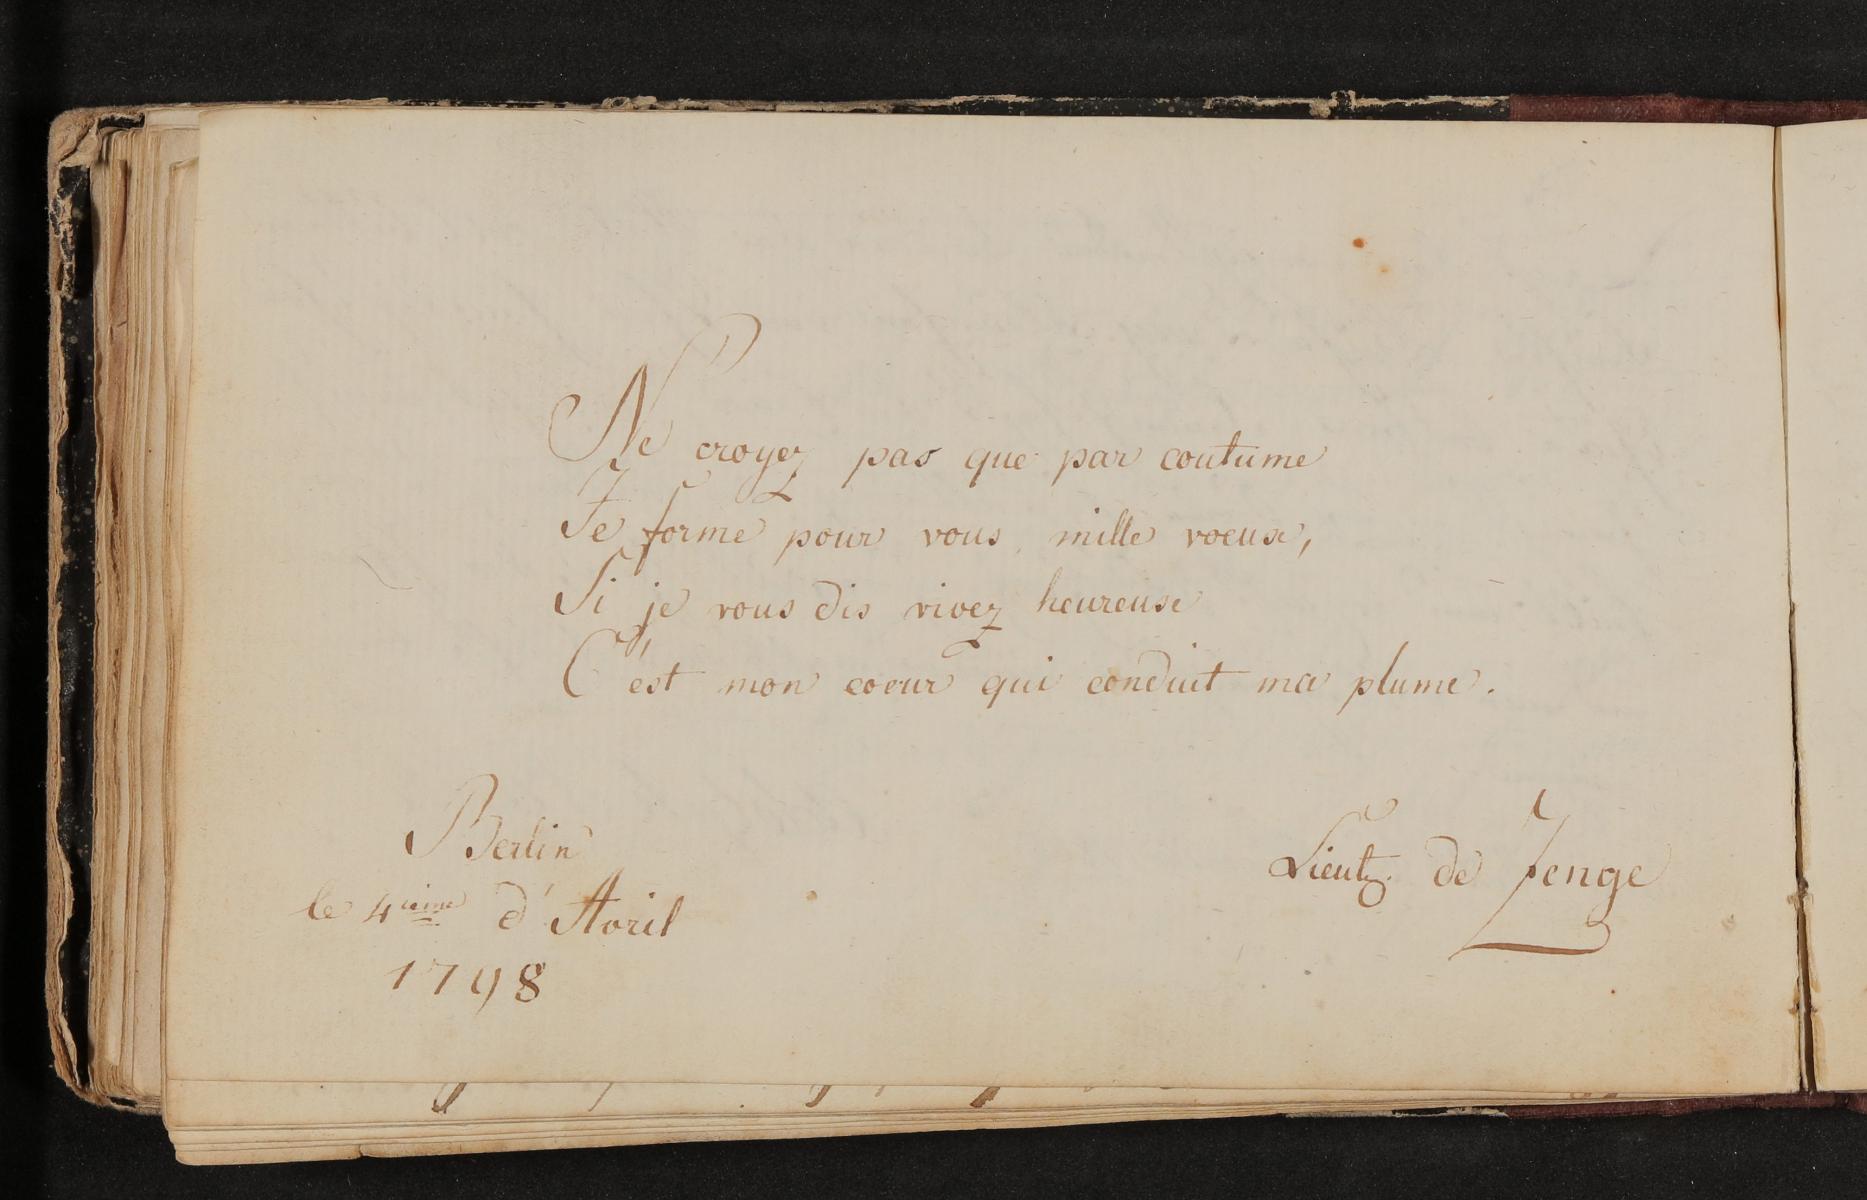 Ne croyez pas que par coutume
Je forme pour vous mille voeux,
Si je vous dis vivez heureuse
C'est mon coeur qui conduit ma plume.
Berlin
le 4ieme d'Avril
1798
Lieut. de Zenge